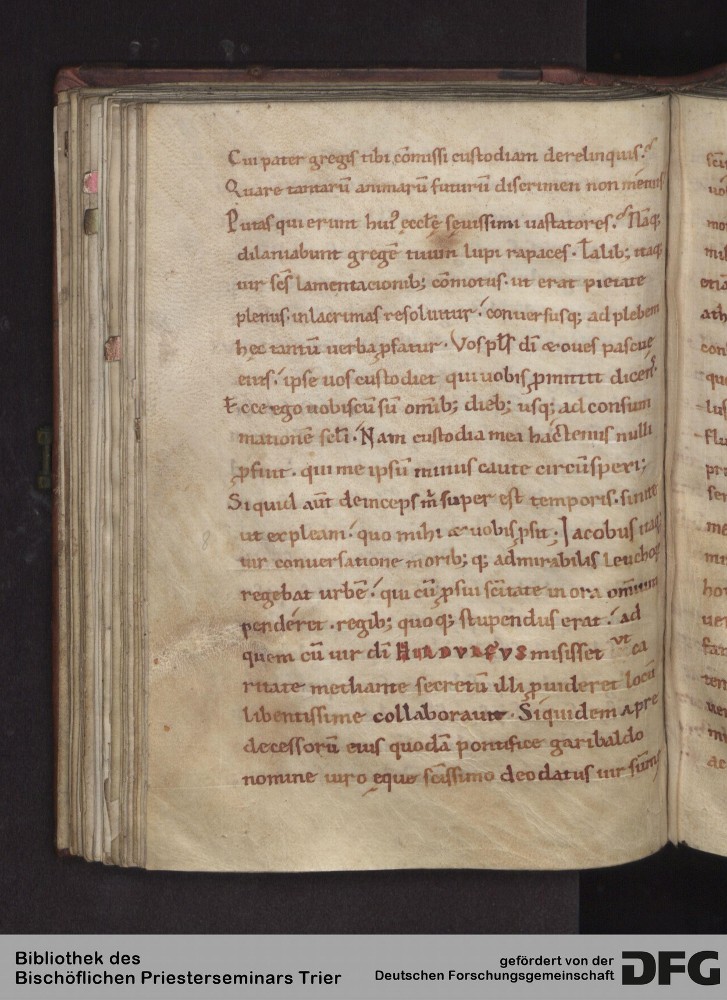 Cui pater gregis tibi cõmissi custodiam derelinquis.
Quare tantarũ animarũ futurũ discrimen non metuis
Putas qui erunt huiꝰ ęccłę sęuissimi uastatores. Nãq;
dilaniabunt gregẽ tuum lupi rapaces. Talib; itaq;
uir scs̃ lamentacionib; cõmotus. ut erat pietate
plenus. inlacrimas resoluitur. conuersusq; ad plebem
hęc tantũ uerba p̱fatur. Vos pls̃ dĩ & oues pascuę
eius. ipse uos custodiet qui uobis p̱mittit dicens.
Ecce ego uobiscũ sũ omĩb; dieb; usq; ad consum
mationẽ scłi. Nam custodia mea hactenus nulli
p̱fuit. qui me ipsũ minus caute circũspexi;
Si quid aũt deinceps m̃ super est temporis. sinite
ut expleam. quo mihi & uobis p̱sit. Iacobus itaq;
uir conuersatione morib; q; admirabilis Leuchoꝝ
regebat urbẽ. qui cũ p̱ sui scĩtate in ora omnium
penderet. regib; quoq; stupendus erat. ad
quem cũ uir dĩ HILDVLFVS misisset ut ca
ritate mediante secretũ illi p̱uideret locũ
libentissime collaborauit. Siquidem a pre
decessorũ eius quodã pontifice garibaldo
nomine uiro ęque scĩssimo deodatus uir sum̃
Bibliothek des
Bischöflichen Priesterseminars Trier
gefördert von der
Deutschen Forschungsgemeinschaft
DFG